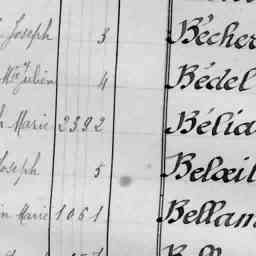 Joseph 3 Bécher
Mie Julien 4 Bédel
Marie 2392 Bélia
Joseph 5 Belœil
Marie 1061 Bellan